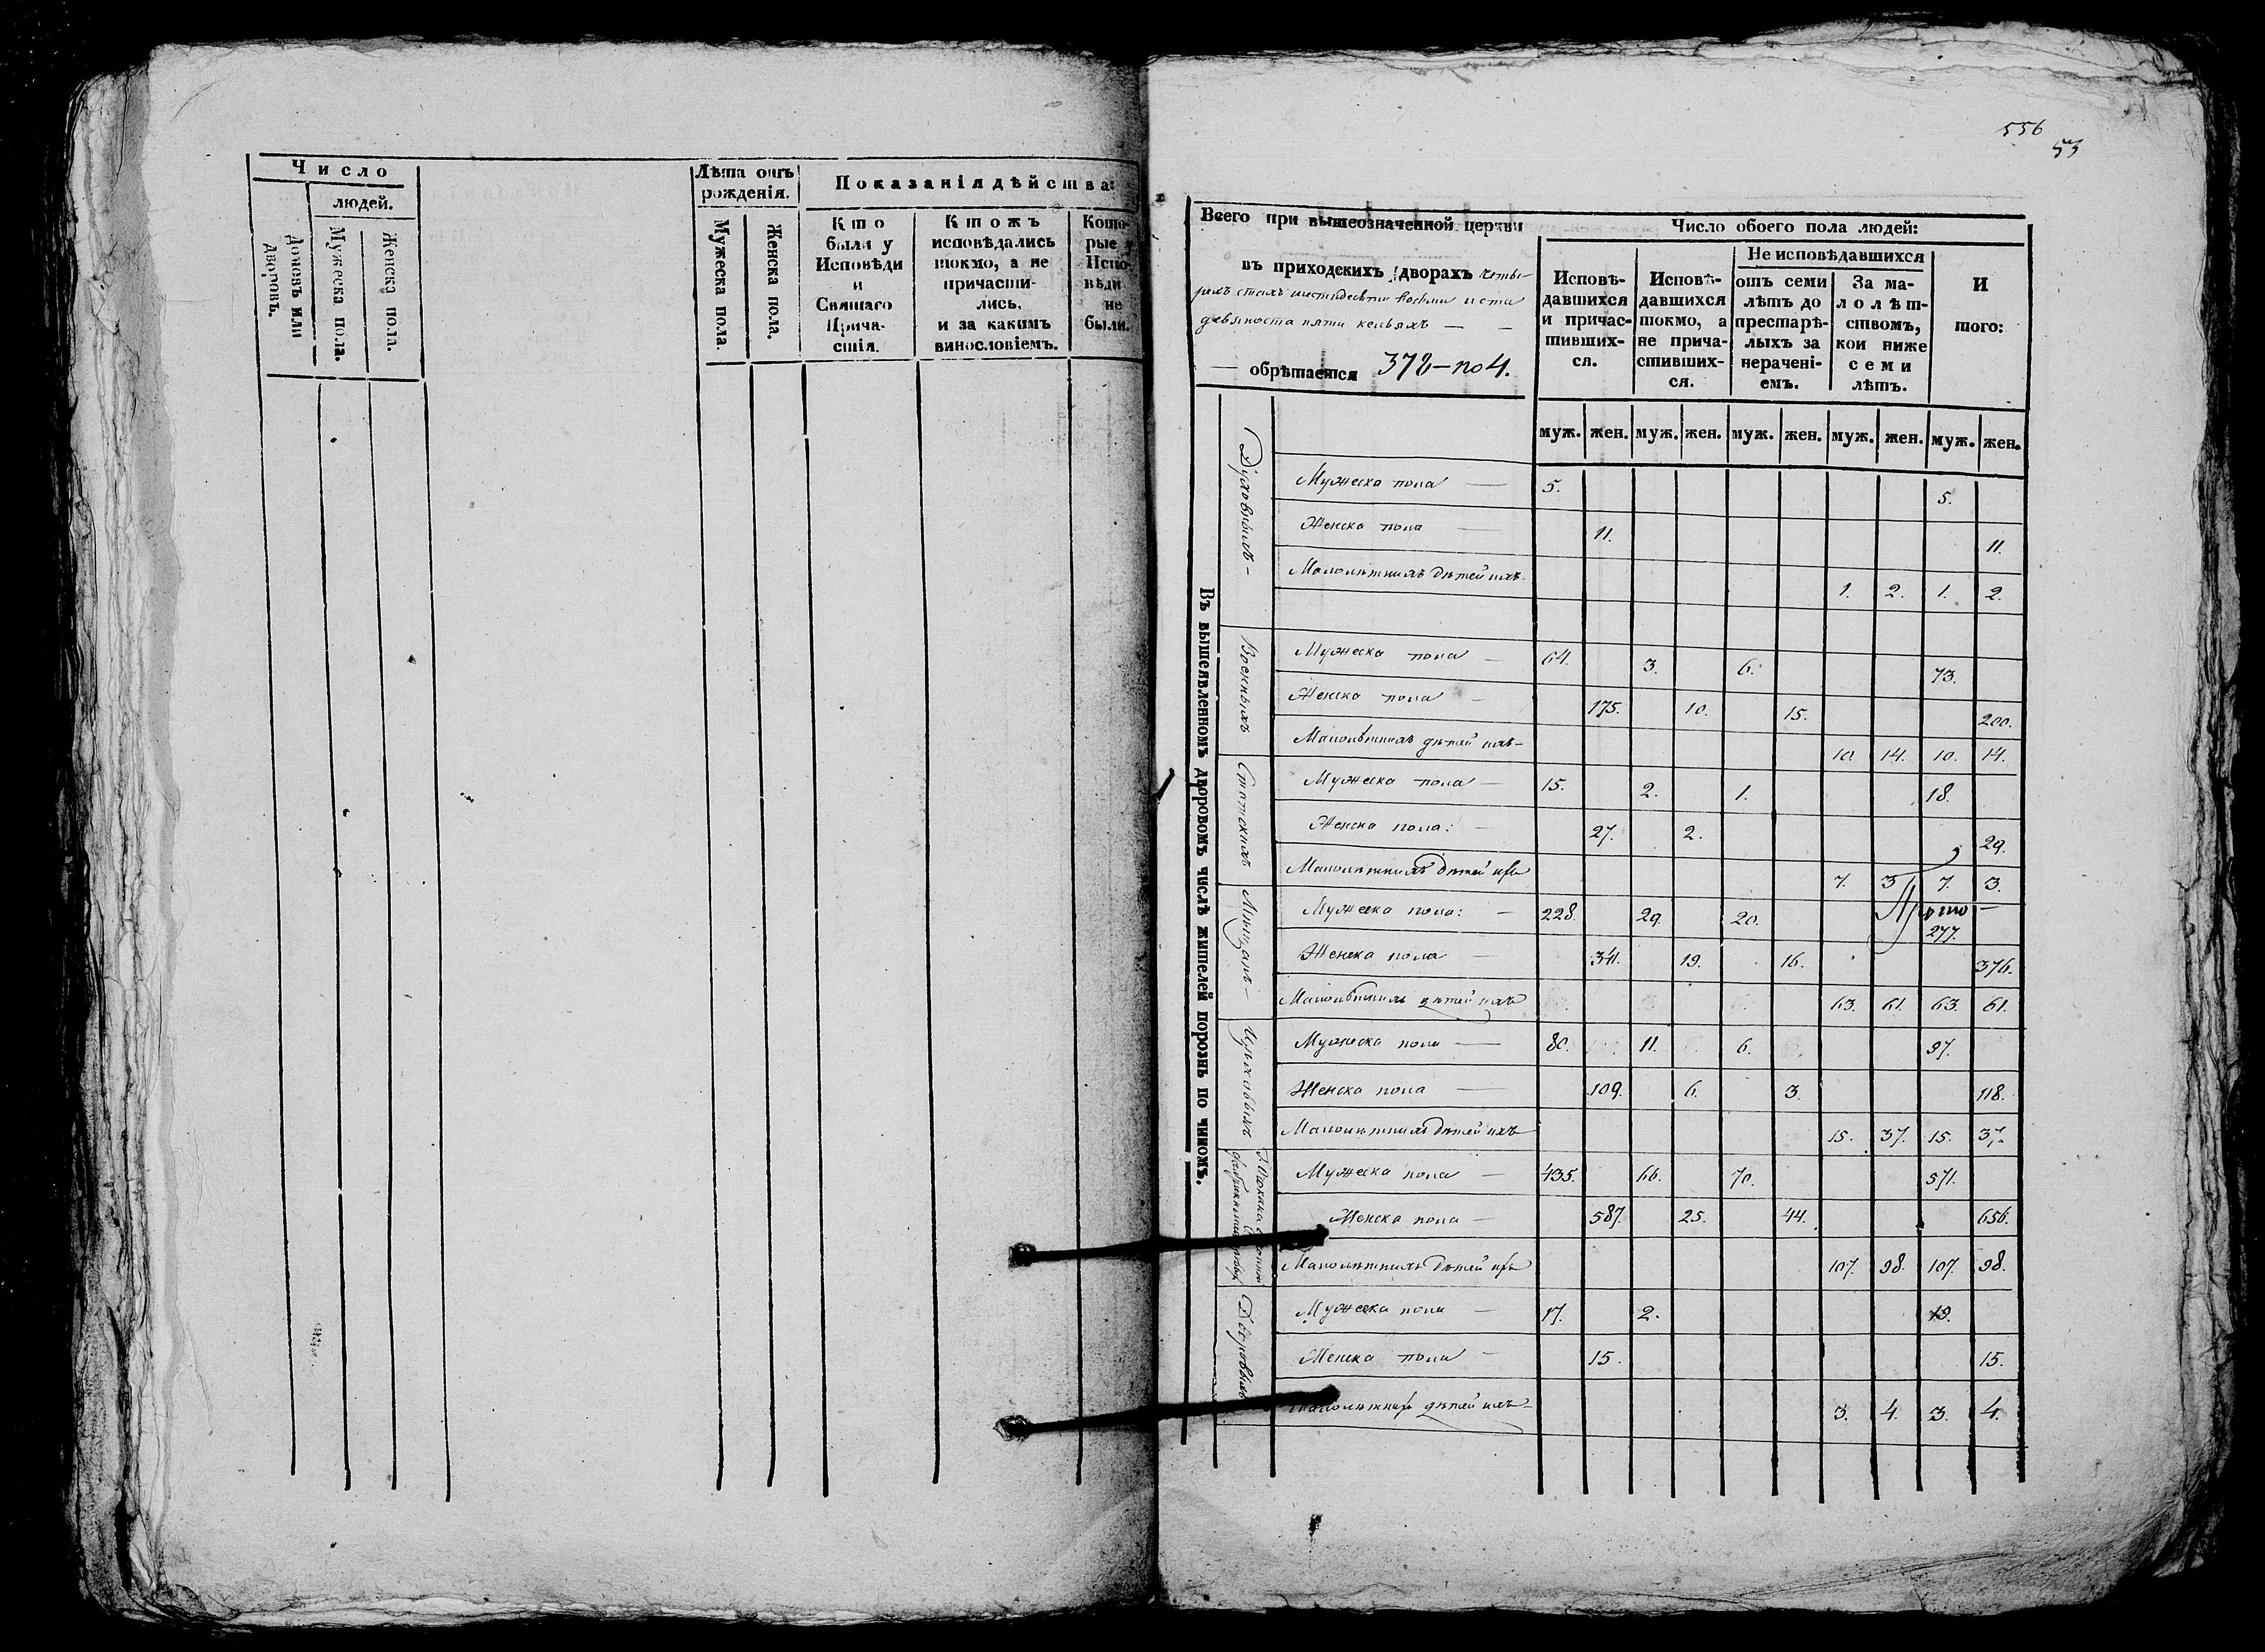 Число
людей.
Домовъ или дворовъ.
Мужеска пола.
Женска пола.
Лѣта отъ
рожденія.
Мужеска пола.
Женска пола.
Показанія дѣйства:
Кто
были у
Исповѣди
и
Святаго
Прича-
стія.
Ктожъ
исповѣдались
токмо, а не
причасти-
лись,
и за какимъ
винословіемъ.
Кото-
рые у
Испо-
вѣди
не
были.
556
53
Всего при вышеозначенной церкви
въ приходскихъ дворахъ четы-
рехъ стахъ шестидесяти восьми и ста
девяноста пяти кельяхъ — —
— обрѣтается 372-по 4.
Число обоего пола людей:
Исповѣ-
давшихся
и причас-
тивших-
ся.
Исповѣ-
давшихся
токмо, а
не прича-
стивших-
ся.
Не исповѣдавшихся
отъ семи
лѣтъ до
престарѣ-
лыхъ за
нераченi-
емъ.
За ма-
лолѣт-
ствомъ,
кои ниже
семи
лѣтъ.
И
того:
муж. жен. муж. жен. муж. жен. муж. жен. муж. жен.
Въ вышеявленномъ дворовомъ числѣ жителей порознь по чиномъ.
Духовныхъ —
Мужеска пола — 5. 5.
Женска пола — 11. 11.
Малолѣтнихъ дѣтей ихъ 1. 2. 1. 2.
Военныхъ
Мужеска пола — 64. 3. 6. 73.
Женска пола — 175. 10. 15. 200.
Малолѣтнихъ дѣтей ихъ — 10. 14. 10. 14.
Статскихъ
Мужеска пола — 15. 2. 1. 18.
Женска пола: — 27. 2. 29.
Малолѣтнихъ дѣтей ихъ 7. 3. 7. 3.
Прото—
Мѣщанъ —
Мужеска пола: — 228. 29. 20. 277.
Женска пола — 341. 19. 16. 376.
Малолѣтнихъ дѣтей ихъ 63. 61. 63. 61.
Цѣховыхъ
Мужеска пола — 80. 11. 6. 97.
Женска пола — 109. 6. 3. 118.
Малолѣтнихъ дѣтей ихъ 15. 37. 15. 37.
Мужеска пола — 435. 66. 70. 571.
Женска пола — 587. 25. 44. 656.
Малолѣтнихъ дѣтей ихъ 107. 98. 107. 98.
Дворовыхъ
Мужеска пола — 17. 2. 19.
Женска пола — 15. 15.
Малолѣтнихъ дѣтей ихъ — 3. 4. 3. 4.